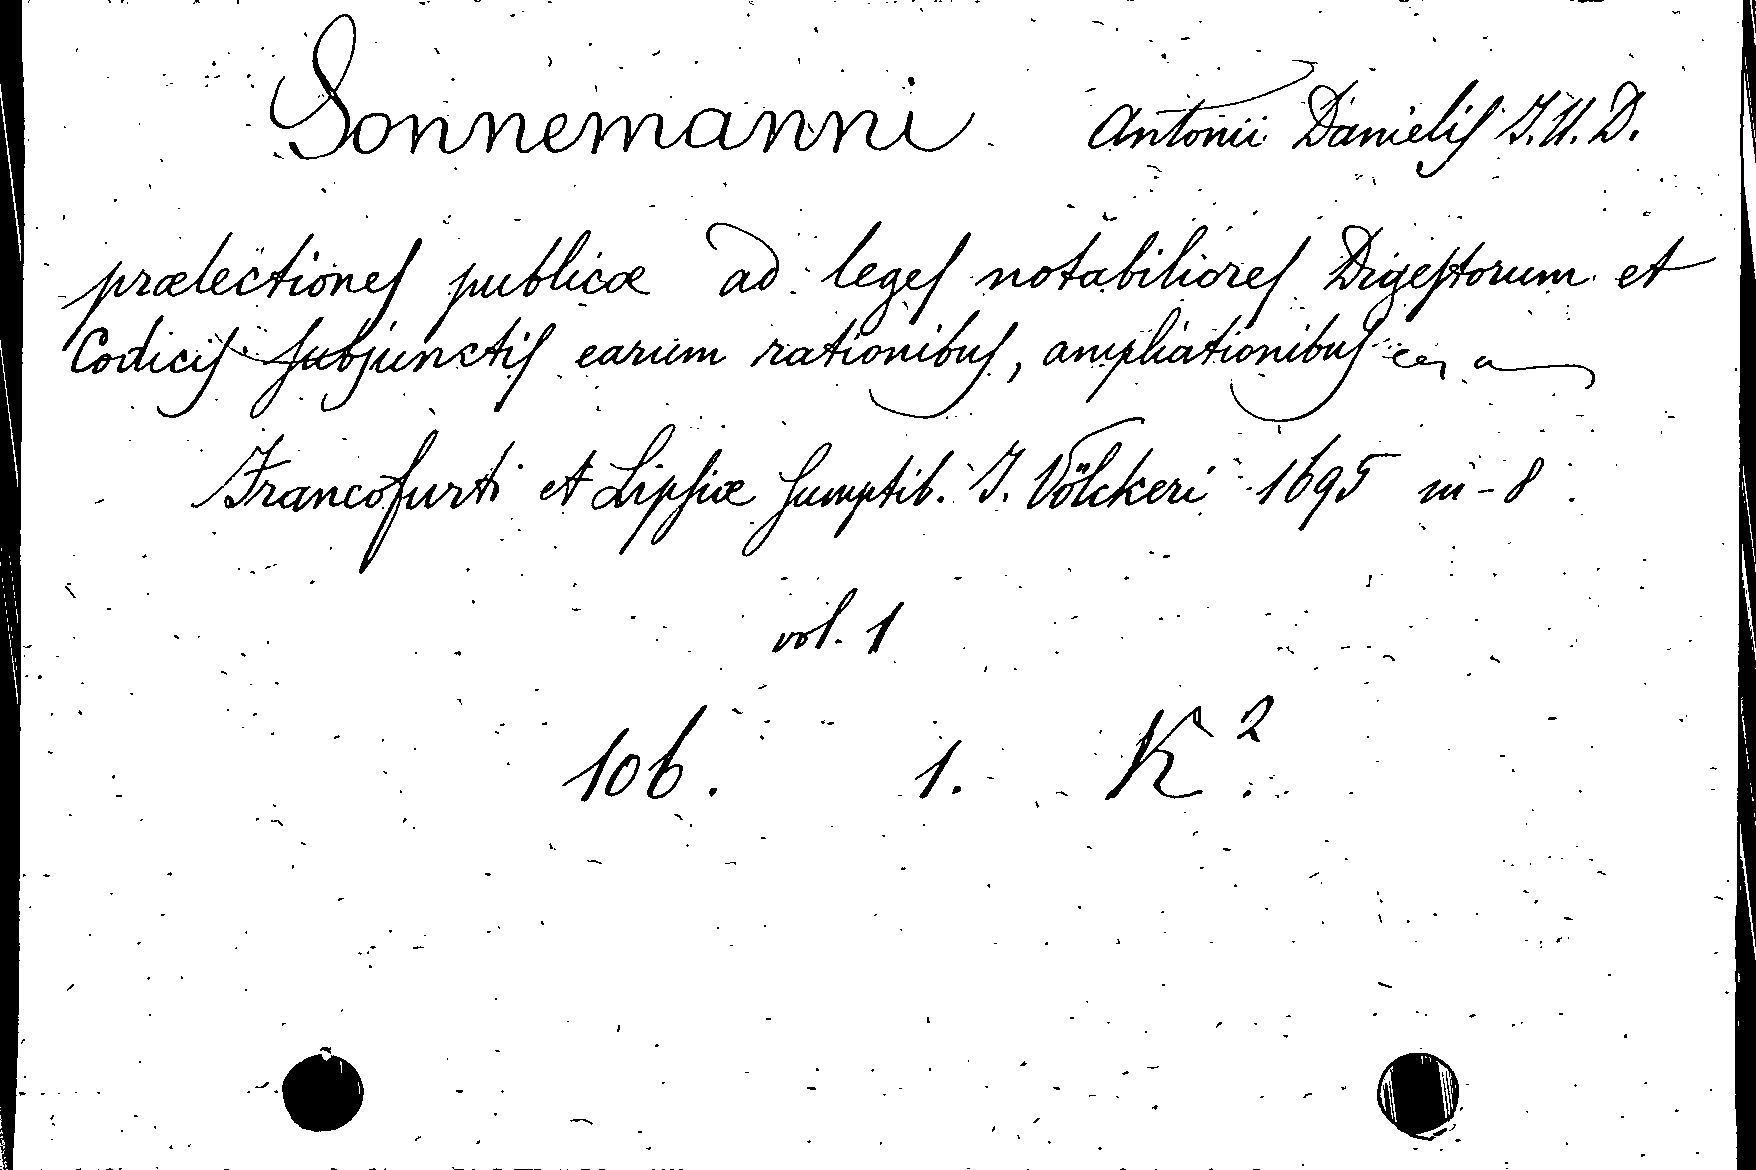 Sonnemanni Antonii Danielis J.U.D.
prælectiones publicæ ad leges notabiliores Digestorum et
Codicis subjunctis earum rationibus, ampliationibus
Francofurti et Lipsiæ sumptib. J. Völckeri 1695 in-8.
vol. 1
106. 1. K².